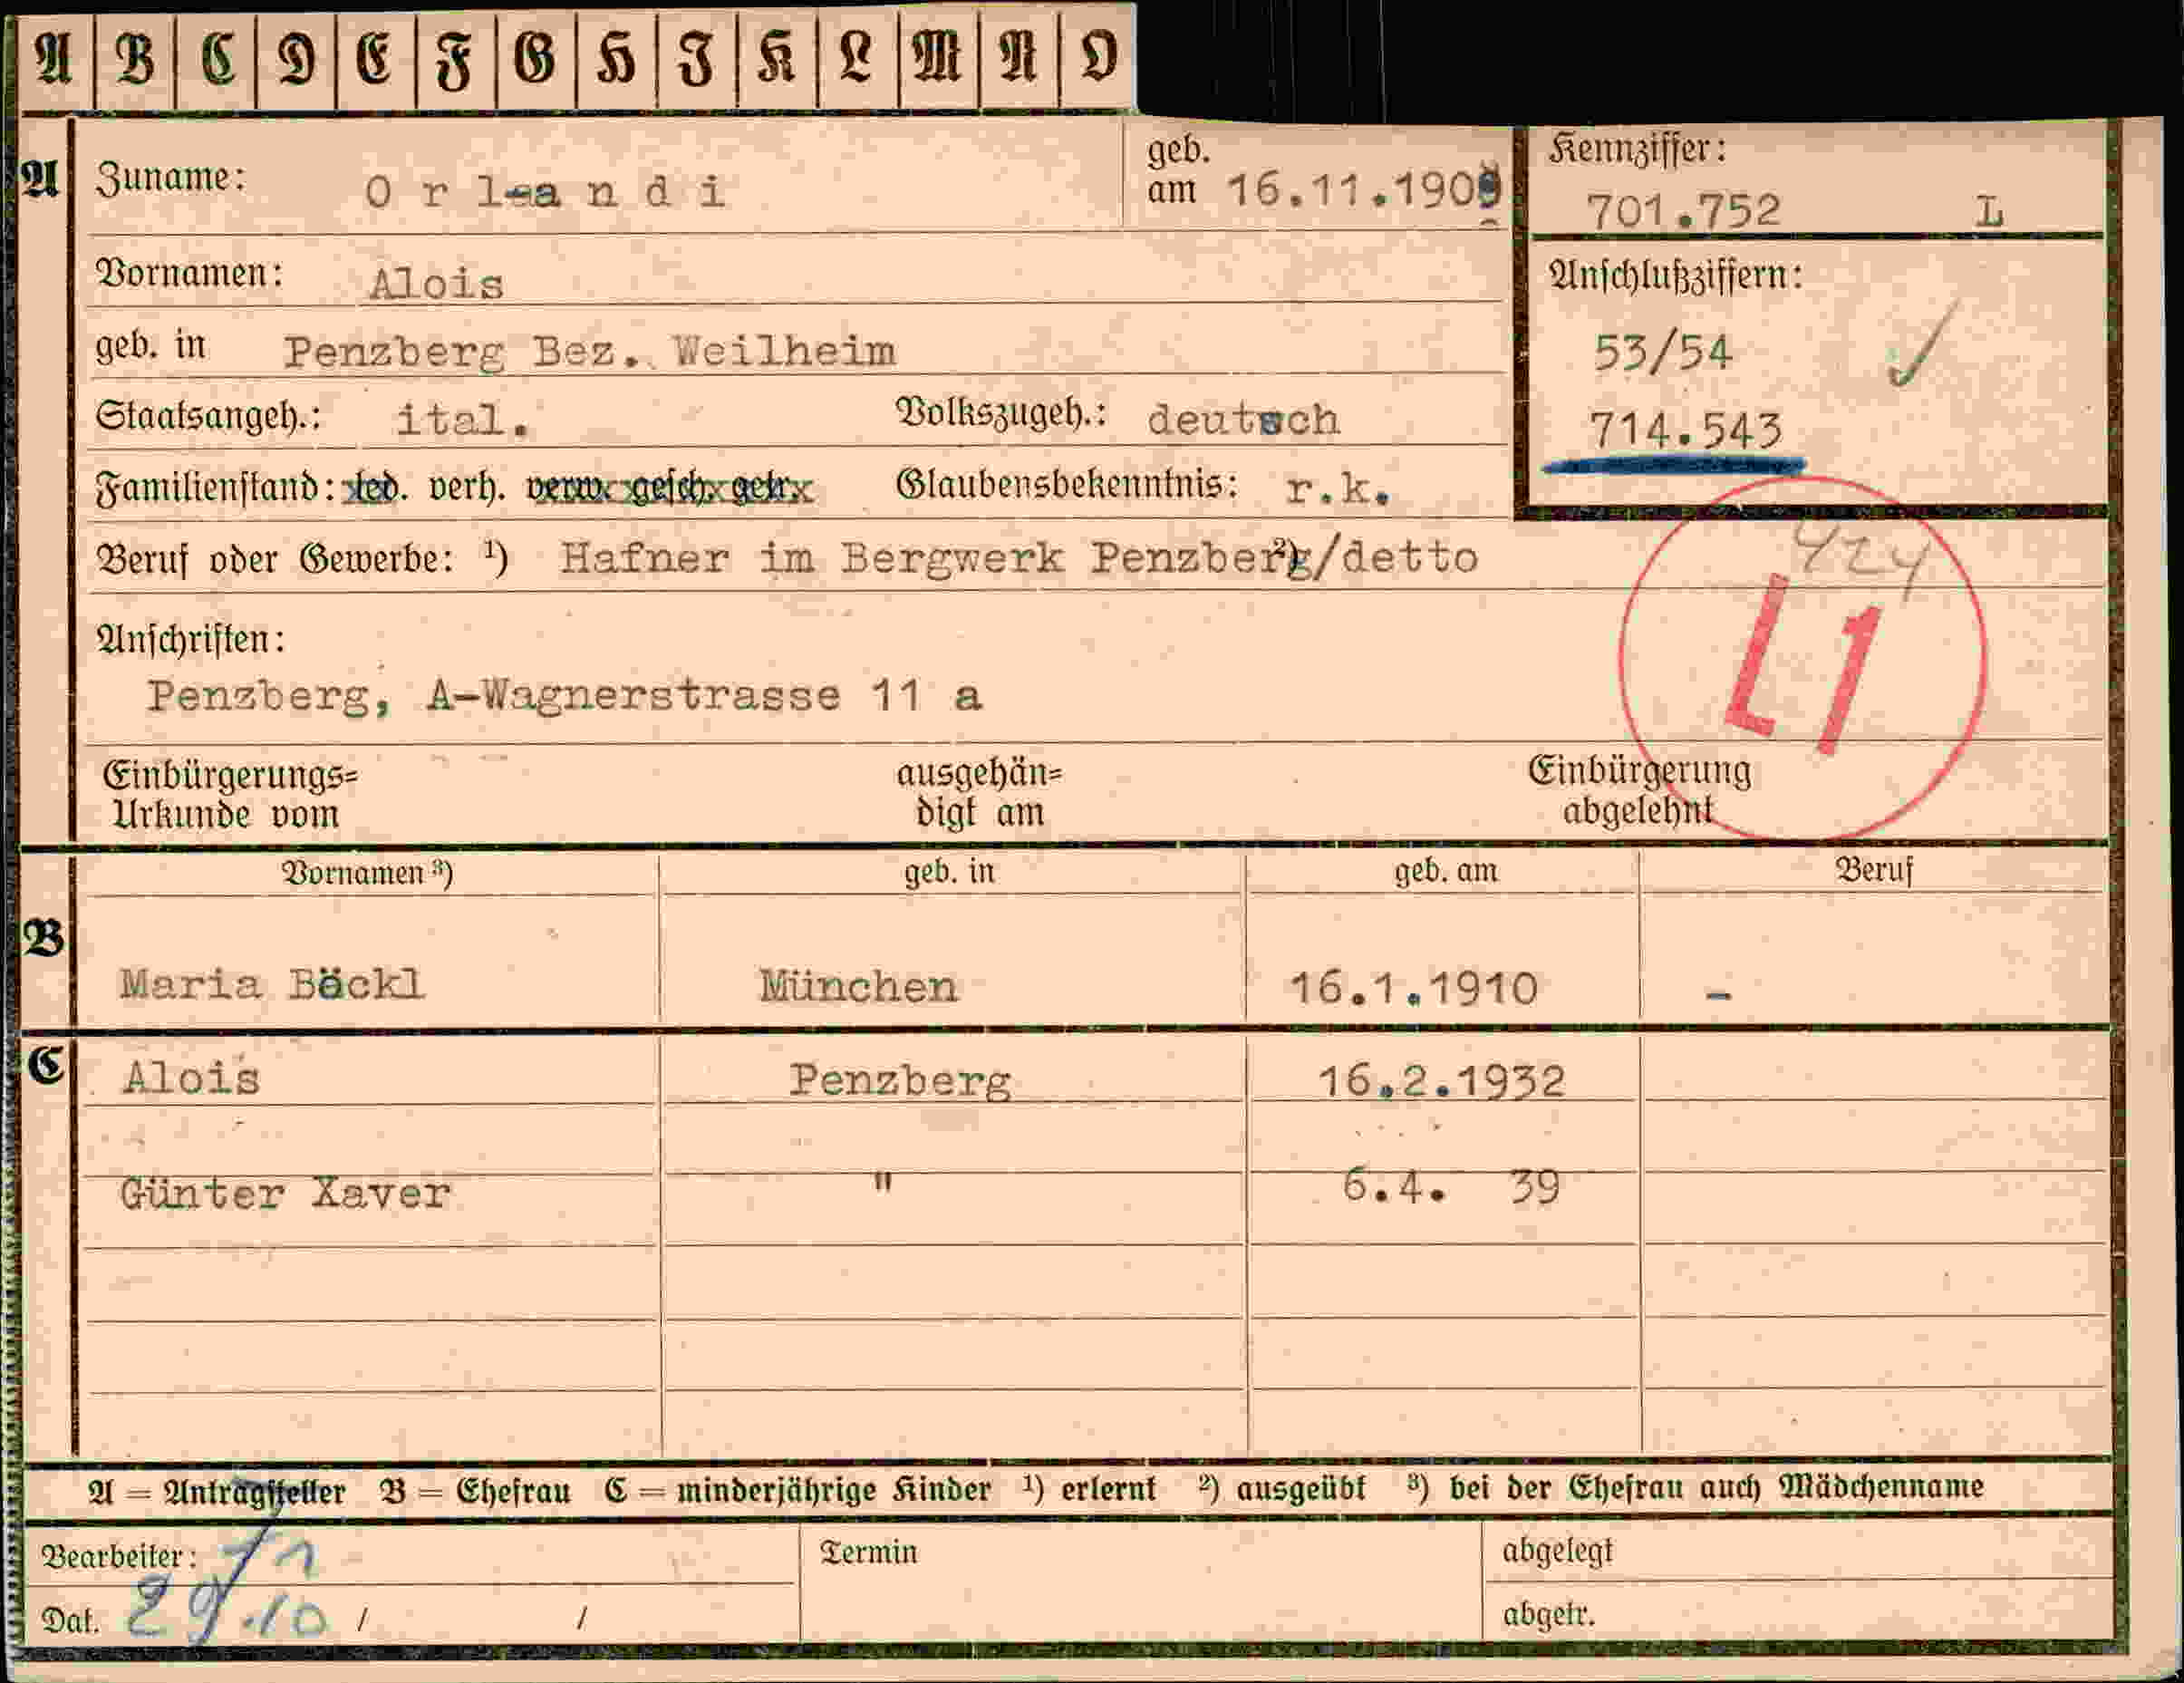 A B C D E F G H I K L M N O
A Zuname: O r l a n d i geb. am 16.11.1909 Kennziffer: 701.752 L
Vornamen: Alois Anschlußziffern:
geb. in Penzberg Bez. Weilheim 53/54
Staatsangeh.: ital. Volkszugeh.: deutsch 714.543
Familienstand: led. verh. verw. gesch. getr. Glaubensbekenntnis: r.k.
Beruf oder Gewerbe: ¹) Hafner im Bergwerk Penzberg ²)/detto 424
Anschriften: L1
Penzberg, A-Wagnerstrasse 11 a
Einbürgerungs= ausgehän= Einbürgerung
Urkunde vom digt am abgelehnt
Vornamen ³) geb. in geb. am Beruf
B
Maria Böckl München 16.1.1910 -
C Alois Penzberg 16.2.1932
Günter Xaver " 6.4. 39
A = Antragsteller B = Ehefrau C = minderjährige Kinder ¹) erlernt ²) ausgeübt ³) bei der Ehefrau auch Mädchenname
Bearbeiter: Termin abgelegt
Dat. 29.10 / / abgetr.